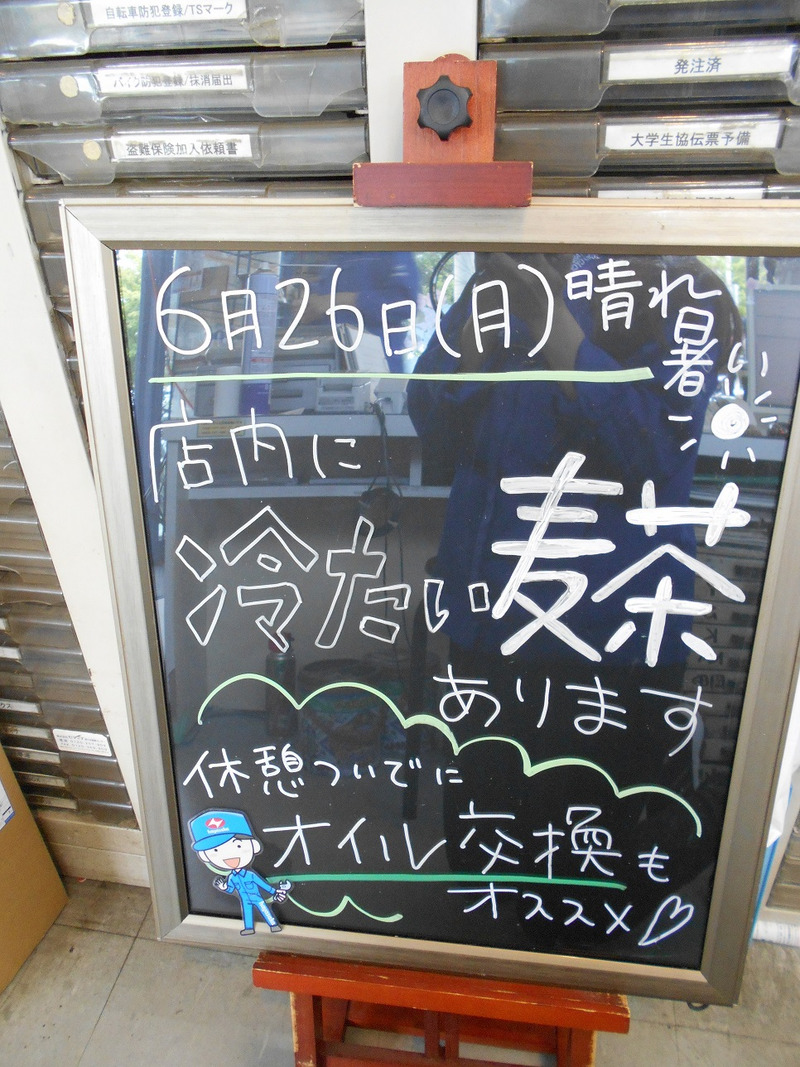 自転車防犯登録/TSマーク
バイク防犯登録/抹消届出
盗難保険加入依頼書
発注済
大学生協伝票予備
6月26日(月)晴れ
暑い
店内に
冷たい麦茶
あります
休憩ついでに
オイル交換も
オススメ♡